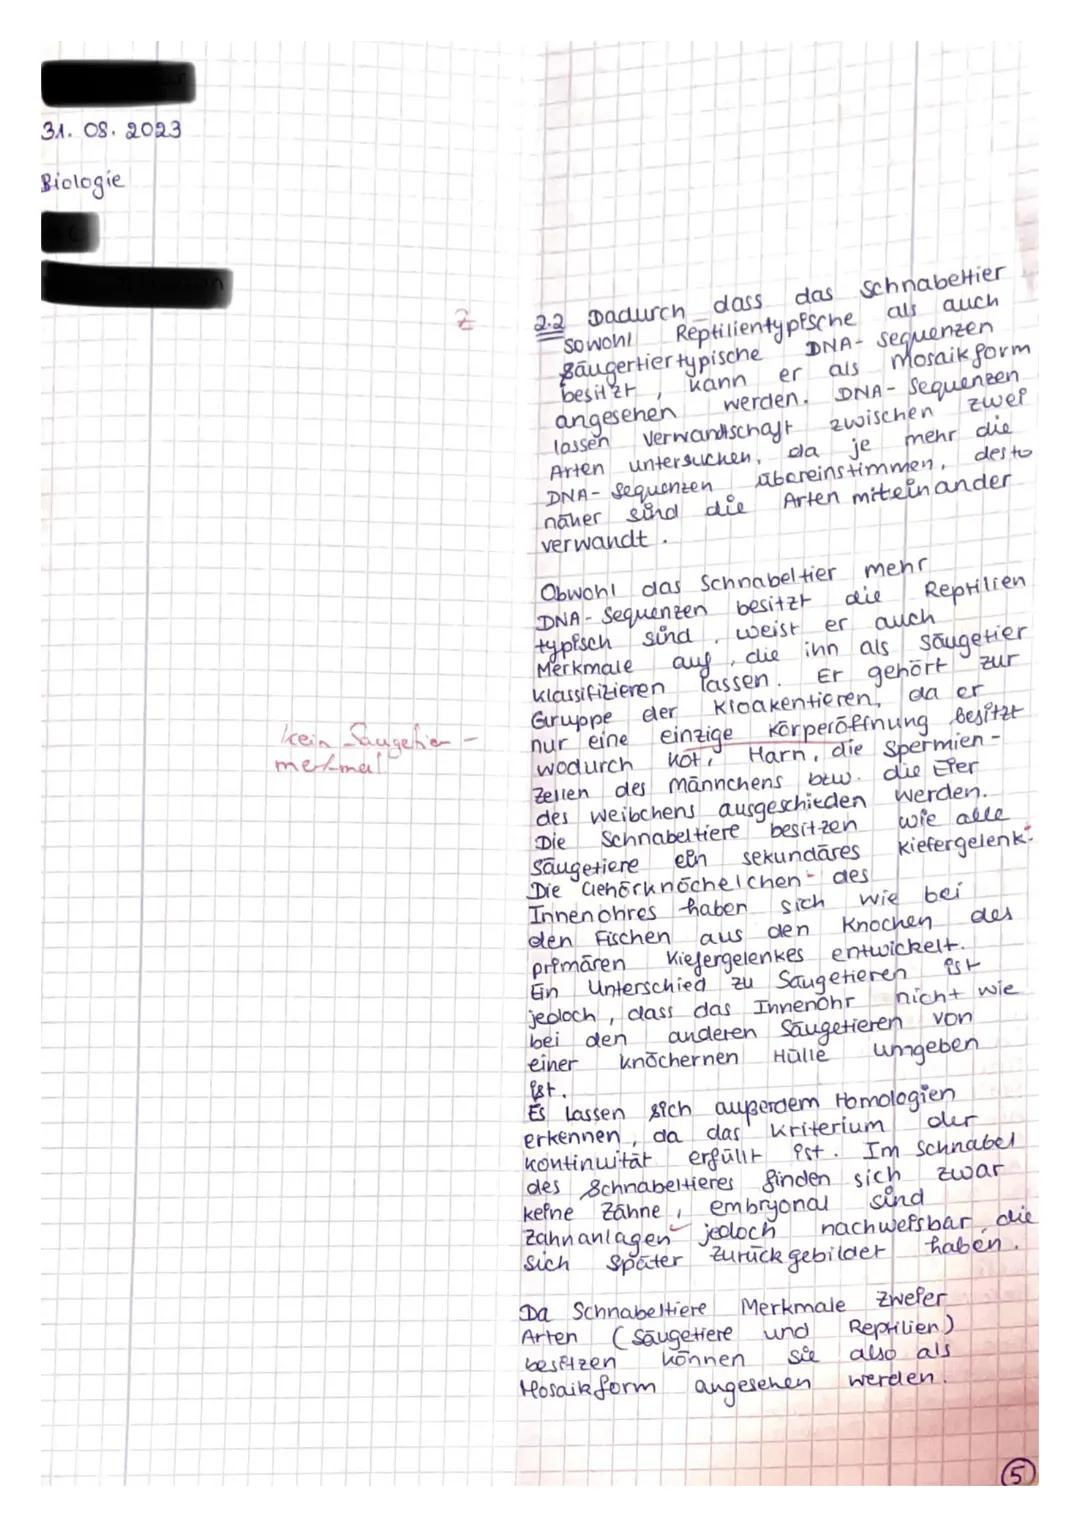 31. 08. 2023
Biologie
z
2.2 Dadurch dass das Schnabeltier
sowohl Reptilientypische als auch
säugertiertypische DNA- Sequenzen
besitzt, kann er als Mosaikform
angesehen werden. DNA- Sequenzen
lassen Verwandschaft zwischen zwei
Arten untersuchen, da je mehr die
DNA- Sequenzen übereinstimmen, desto
näher sind die Arten miteinander
verwandt.
Obwohl das Schnabeltier mehr
DNA- Sequenzen besitzt die Reptilien
typisch sind, weist er auch
Merkmale auf, die ihn als Säugetier
klassifizieren lassen. Er gehört zur
Gruppe der Kloakentieren, da er
nur eine einzige Körperöffnung besitzt
wodurch Kot, Harn, die Spermien-
zellen des Männchens bzw. die Eier
des Weibchens ausgeschieden werden.
kein Saugetier-
merkmal
Die Schnabeltiere besitzen wie alle
Säugetiere ein sekundäres Kiefergelenk.
Die Gehörknöchelchen des
Innenohres haben sich wie bei
den Fischen aus den Knochen des
primären Kiefergelenkes entwickelt.
Ein Unterschied zu Säugetieren ist
jedoch, dass das Innenohr nicht wie
bei den anderen Säugetieren von
einer knöchernen Hülle umgeben
ist.
Es lassen sich außerdem Homologien
erkennen, da das Kriterium der
Kontinuität erfüllt ist. Im Schnabel
des Schnabeltieres finden sich zwar
keine Zähne, embryonal sind
Zahnanlagen jedoch nachweisbar, die
sich später zurückgebildet haben.
Da Schnabeltiere Merkmale zweier
Arten (Säugetiere und Reptilien)
besitzen können sie also als
Mosaikform angesehen werden.
5